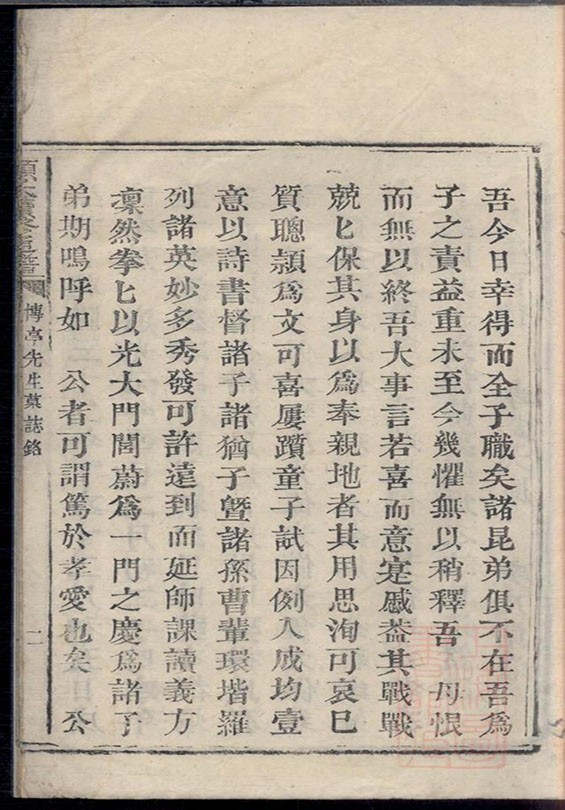 吾今日幸得而全子職矣諸昆弟俱不在吾爲
子之責益重未至今幾懼無以稍釋吾　母恨
而無以終吾大事言若喜而意寔慼葢其戰戰
兢匕保其身以爲奉親地者其用思洵可哀巳
質聰頴爲文可喜屢躓童子試因例入成均壹
意以詩書督諸子諸猶子曁諸孫曹輩環堦羅
列諸英妙多秀發可許遠到而延師課讀義方
凛然拳匕以光大門閭蔚爲一門之慶爲諸子
弟期嗚呼如　公者可謂篤於孝愛也矣　公
博亭先生墓誌銘
二